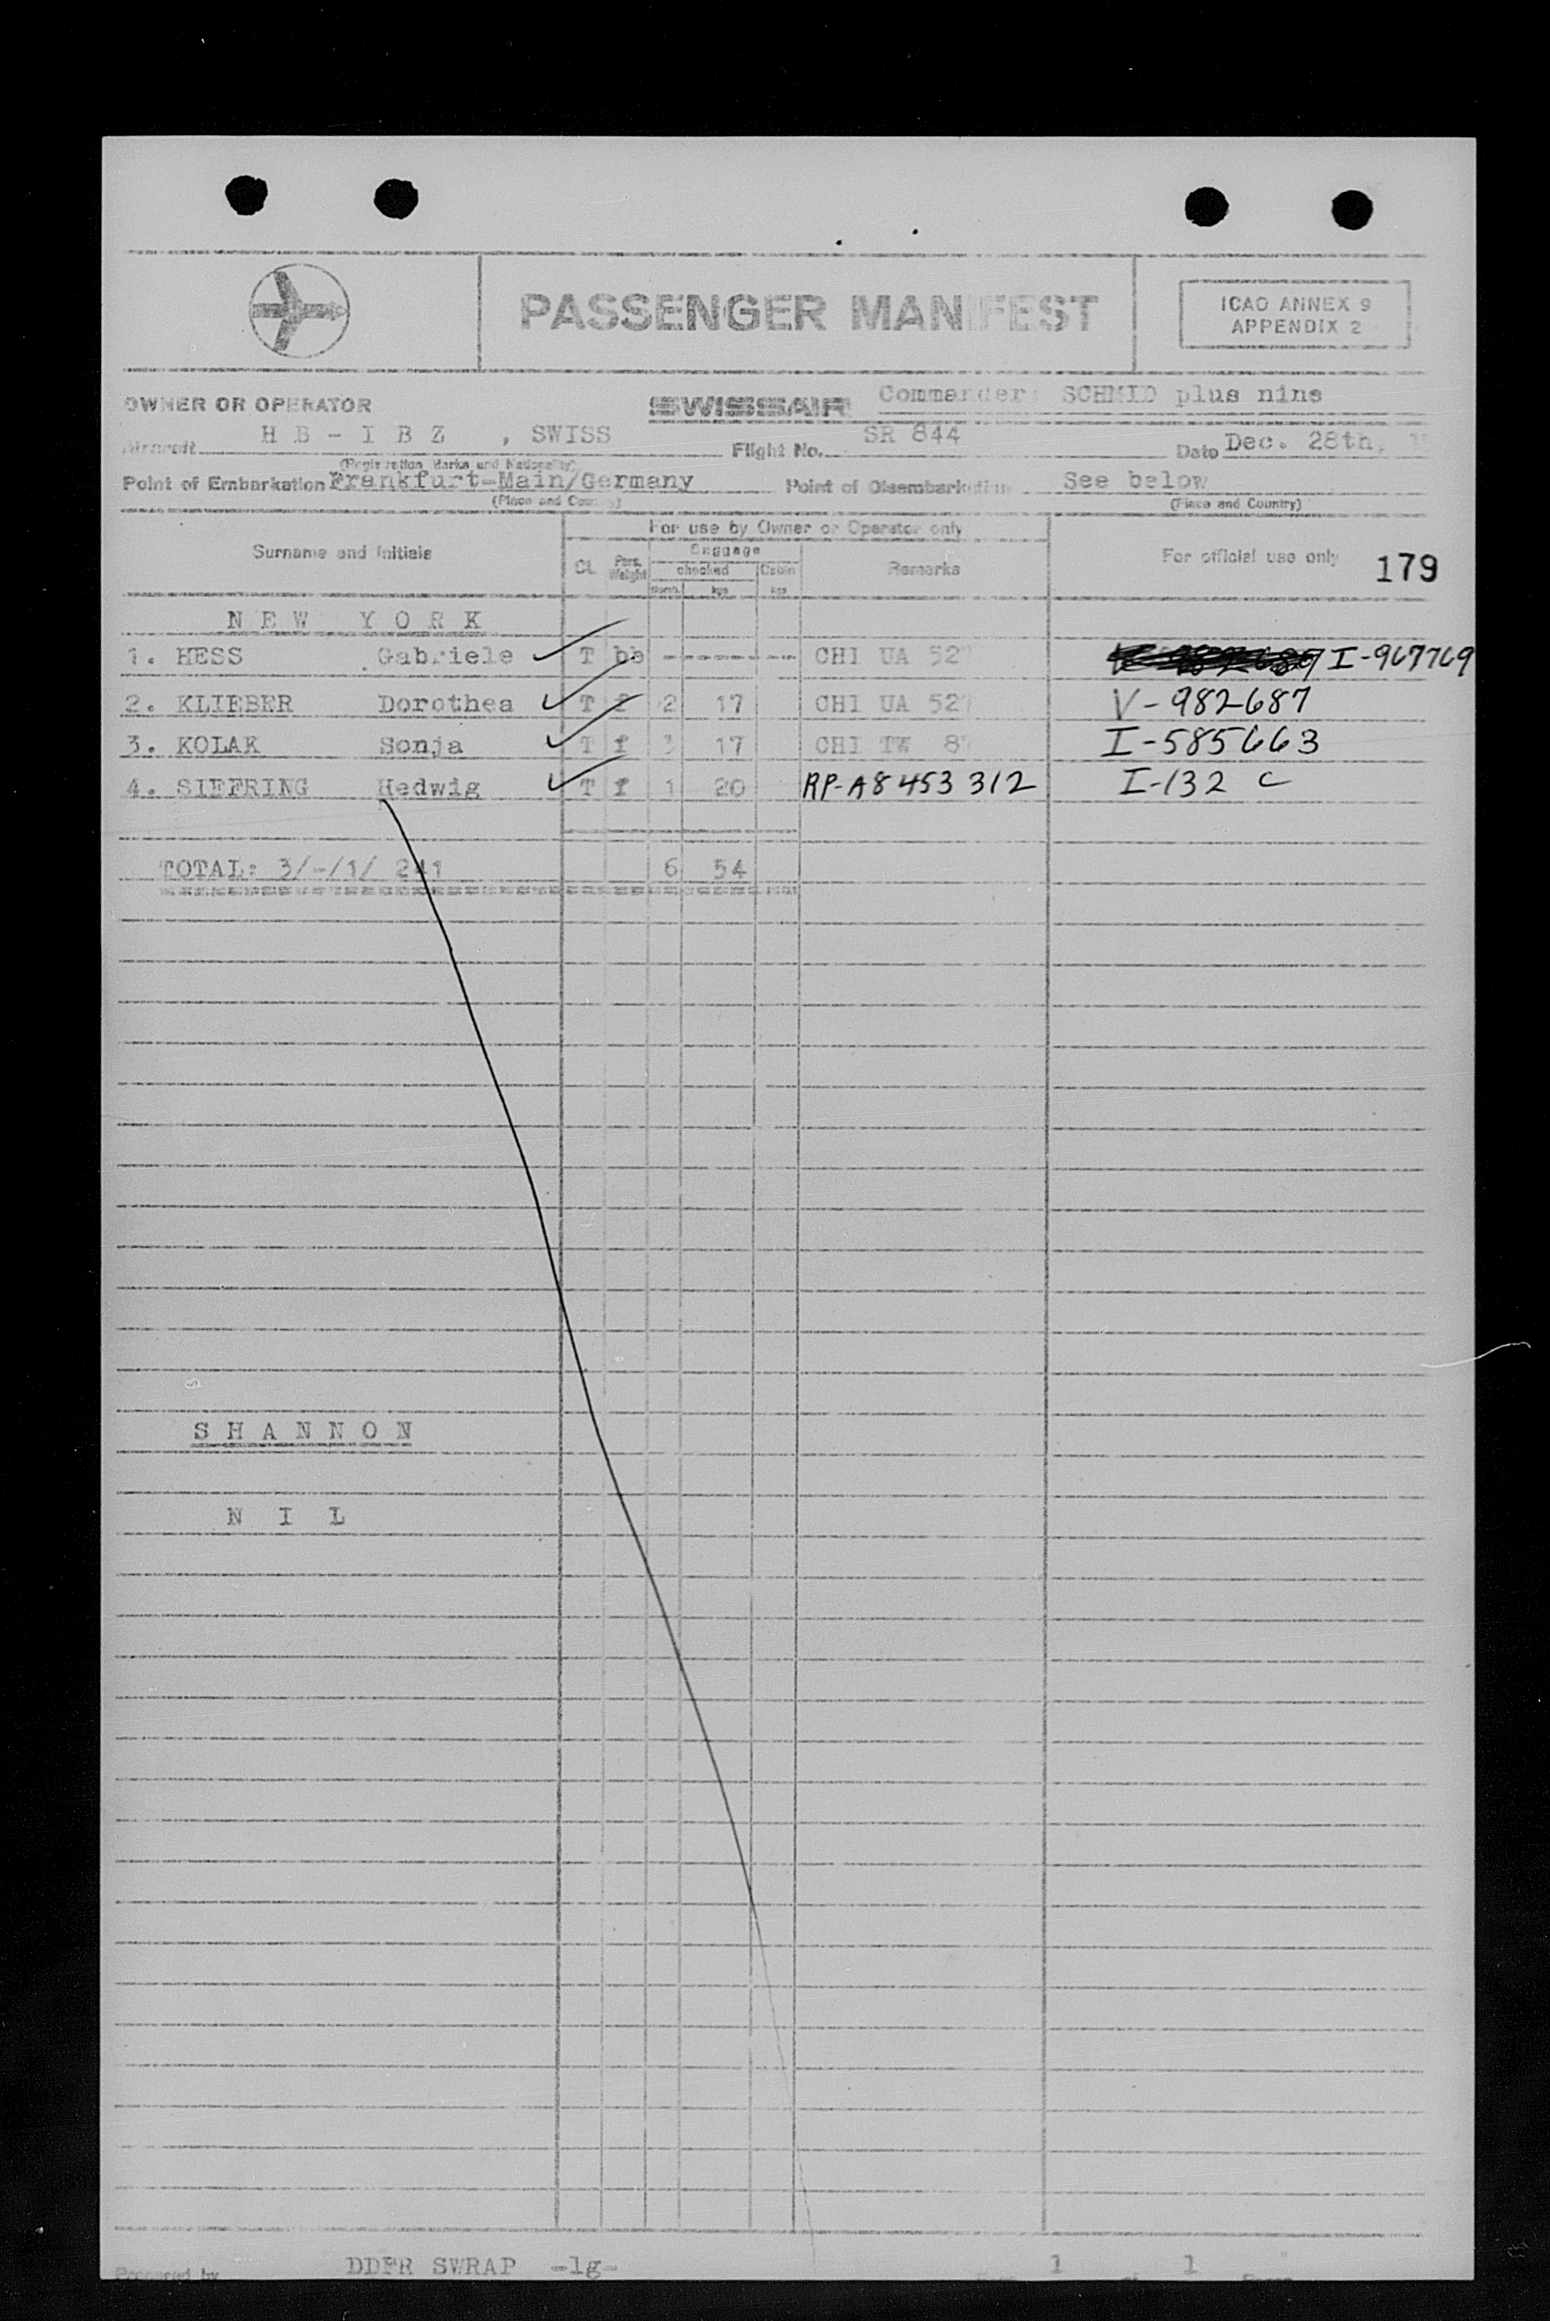 PASSENGER MANIFEST
ICAO ANNEX 9
APPENDIX 2
OWNER OR OPERATOR SWISSAIR Commander: SCHMID plus nine
Aircraft HB-IBZ , SWISS Flight No. SR 844 Date Dec. 28th,
(Registration Marks and Nationality)
Point of Embarkation Frankfurt-Main/Germany Point of Disembarkation See below
(Place and Country) (Place and Country)
For use by Owner or Operator only
Surname and Initials CL Pers. Weight Baggage checked Numb. kgs Cabin kgs Remarks For official use only 179
NEW YORK
1. HESS Gabriele T bb -------- CHI UA 527 I-967769
2. KLIEBER Dorothea T f 2 17 CHI UA 527 V-982687
3. KOLAK Sonja T f 3 17 CHI TW 8 I-585663
4. SIEFRING Hedwig T f 1 20 RP-A8 453 312 I-132 C
TOTAL: 3/-/1/ 241 6 54
SHANNON
NIL
Prepared by DDFR SWRAP -lg- 1 1